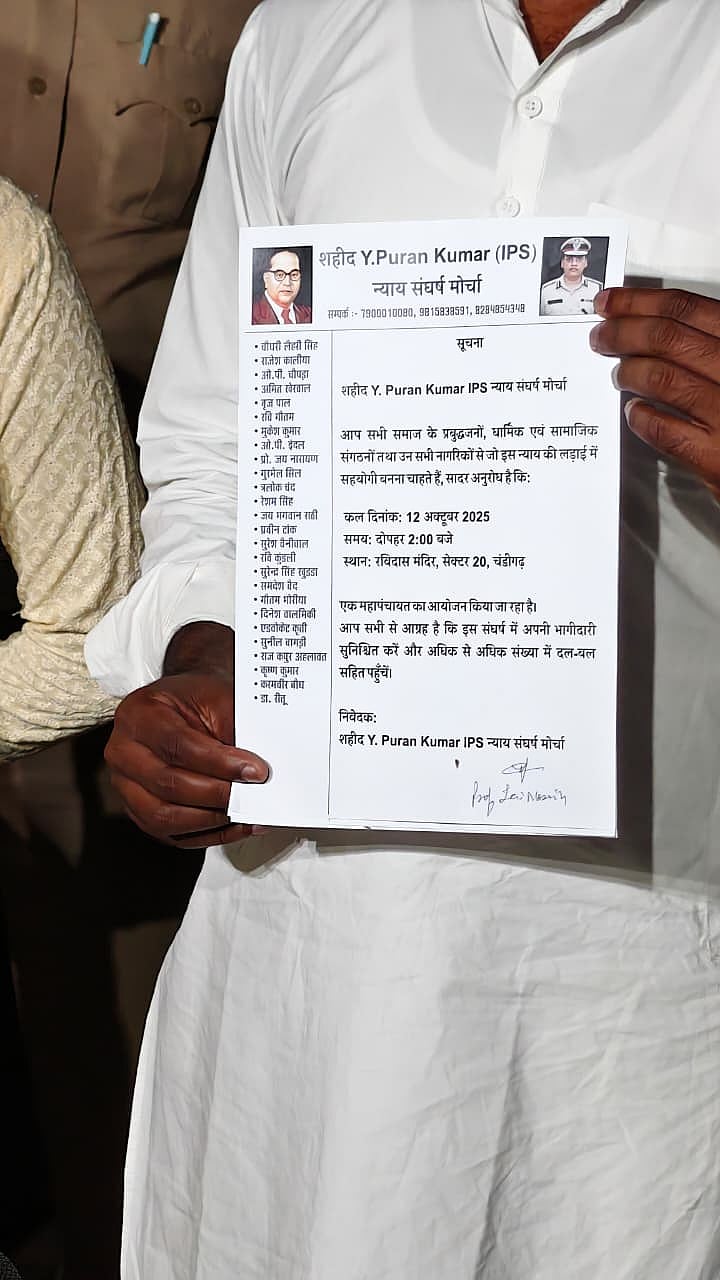 शहीद Y.Puran Kumar (IPS)
न्याय संघर्ष मोर्चा
सम्पर्क :- 7900010080, 9815838591, 9284854348
• चौधरी लैहरी सिंह
• राजेश कालीया
• ओ.पी. चौपड़ा
• अमित खेरवाल
• बृज पाल
• रवि गौतम
• मुकेश कुमार
• ओ.पी. इंदल
• प्रो. जय नारायण
• गुरमेल सिंह
• त्रलोक चंद
• रेशम सिंह
• जय भगवान राठी
• प्रवीन टांक
• सुरेश बैनीवाल
• रवि कुंडली
• सुरेन्द्र सिंह खुडडा
• गौतम भोरीया
• दिनेश वाल्मिकी
• एडवोकेट कृती
• सुनील बागड़ी
• राज कपुर अहलावत
• कृष्ण कुमार
• करमवीर बौध
• डा. रीतू
सूचना
शहीद Y. Puran Kumar IPS न्याय संघर्ष मोर्चा
आप सभी समाज के प्रबुद्धजनों, धार्मिक एवं सामाजिक
संगठनों तथा उन सभी नागरिकों से जो इस न्याय की लड़ाई में
सहयोगी बनना चाहते हैं, सादर अनुरोध है कि:
कल दिनांक: 12 अक्टूबर 2025
समय: दोपहर 2:00 बजे
स्थान: रविदास मंदिर, सेक्टर 20, चंडीगढ़
एक महापंचायत का आयोजन किया जा रहा है।
आप सभी से आग्रह है कि इस संघर्ष में अपनी भागीदारी
सुनिश्चित करें और अधिक से अधिक संख्या में दल-बल
सहित पहुँचें।
निवेदक:
शहीद Y. Puran Kumar IPS न्याय संघर्ष मोर्चा
Prof